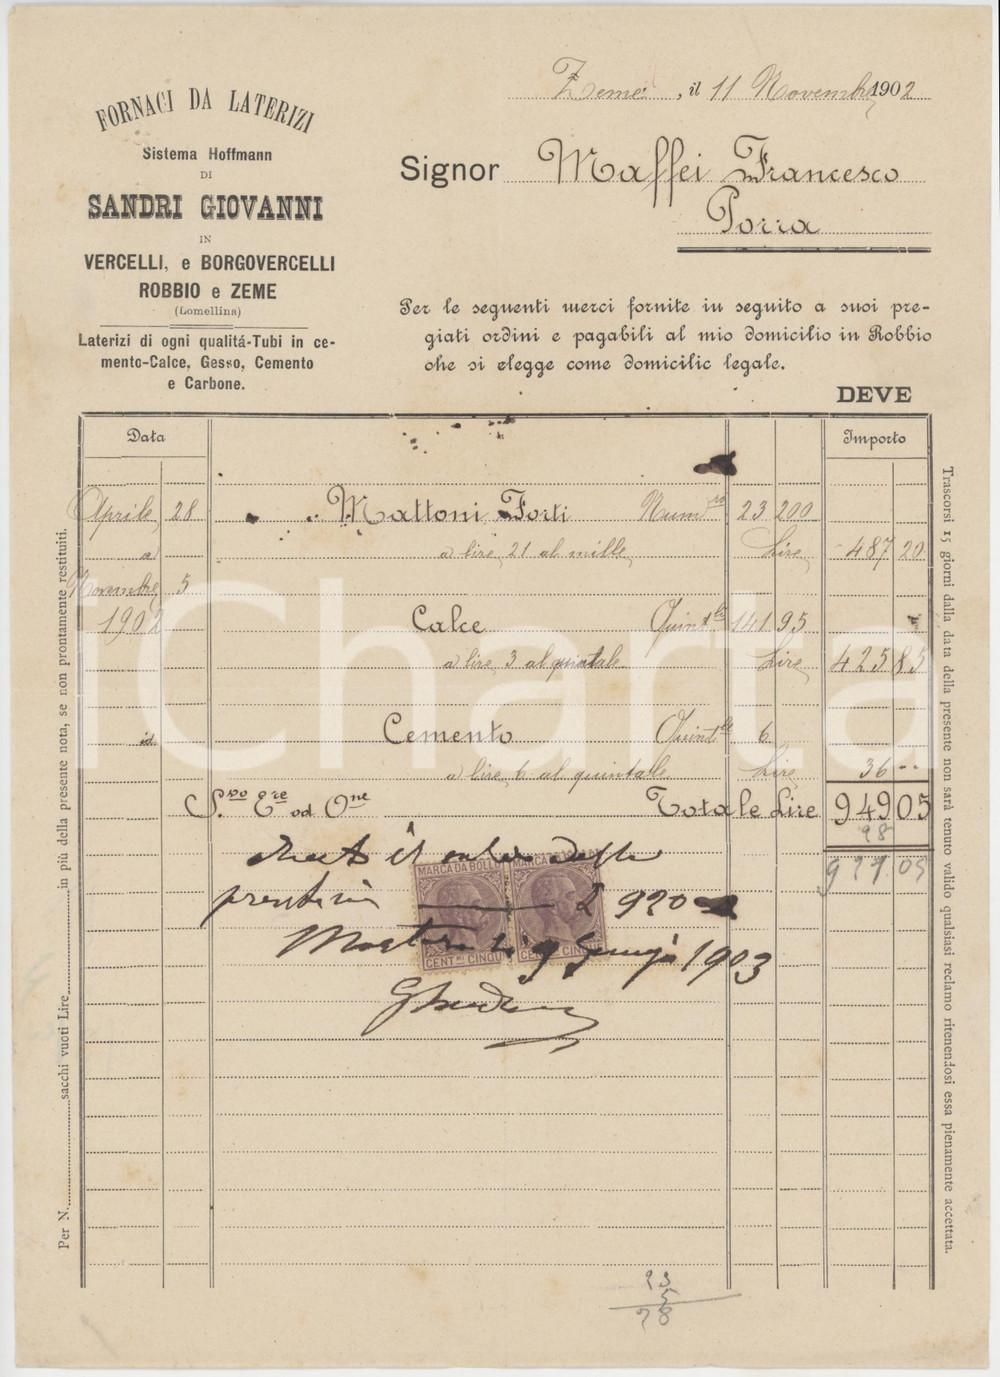 FORNACI DA LATERIZI
Sistema Hoffmann
DI
SANDRI GIOVANNI
IN
VERCELLI, e BORGOVERCELLI
ROBBIO e ZEME
(Lomellina)
Laterizi di ogni qualitá-Tubi in ce-
mento-Calce, Gesso, Cemento
e Carbone.
Zeme, il 11 Novembre 1902
Signor Maffei Francesco
Porra
Per le seguenti merci fornite in seguito a suoi pre-
giati ordini e pagabili al mio domicilio in Robbio
che si elegge come domicilio legale.
DEVE
Data Importo
Aprile 28 Mattoni Forti Num.ro 23 200
a a lire 21 al mille Lire 487 20
Novembre 5
1902 Calce Quint.li 141 95
a lire 3 al quintale Lire 425 85
id. Cemento Quint.li 6
a lire 6 al quintale Lire 36 --
S.po E.re od O.ne Totale Lire 949 05
28
921 05
il
920
MARCA DA BOLLO MARCA DA BOLLO
CENT.MI CINQUE CENT.MI CINQUE
9 1903
23
5
28
Per N. sacchi vuoti Lire in più della presente nota, se non prontamente restituiti.
Trascorsi 15 giorni dalla data della presente non sarà tenuto valido qualsiasi reclamo ritenendosi essa pienamente accettata.
iCharta